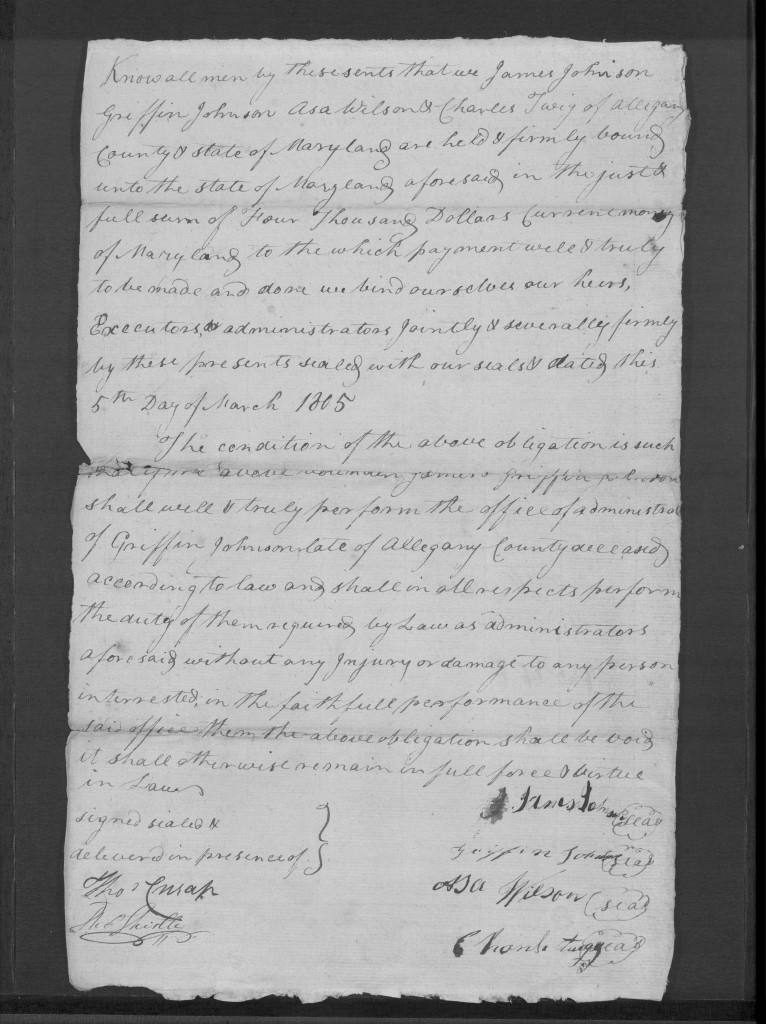 Know all men by these sents that we James Johnson
Griffin Johnson Asa Wilson & Charles Twig of Allegany
County & state of Maryland are held & firmly bound
unto the state of Maryland aforesaid in the just &
full sum of Four Thousand Dollars Current money
of Maryland to the which payment well & truly
to be made and done we bind ourselves our heirs,
Executors, & administrators Jointly & severally firmly
by these presents sealed with our seals & dated this
5th Day of March 1805
The condition of the above obligation is such
above bounden James & Griffin Johnson
shall well & truly perform the office of administrat
of Griffin Johnson late of Allegany County deceased
according to law and shall in all respects perform
the duty of them required by Law as administrators
aforesaid without any Injury or damage to any person
interrested in the faithfull performance of the
said office them the above obligation shall be void
it shall otherwise remain in full force & virtue
in Law
signed sealed &
delivered in presence of
James Johnson seal
Griffin Johnson seal
Thos Cresap
Asa Wilson seal
Charls twigg seal